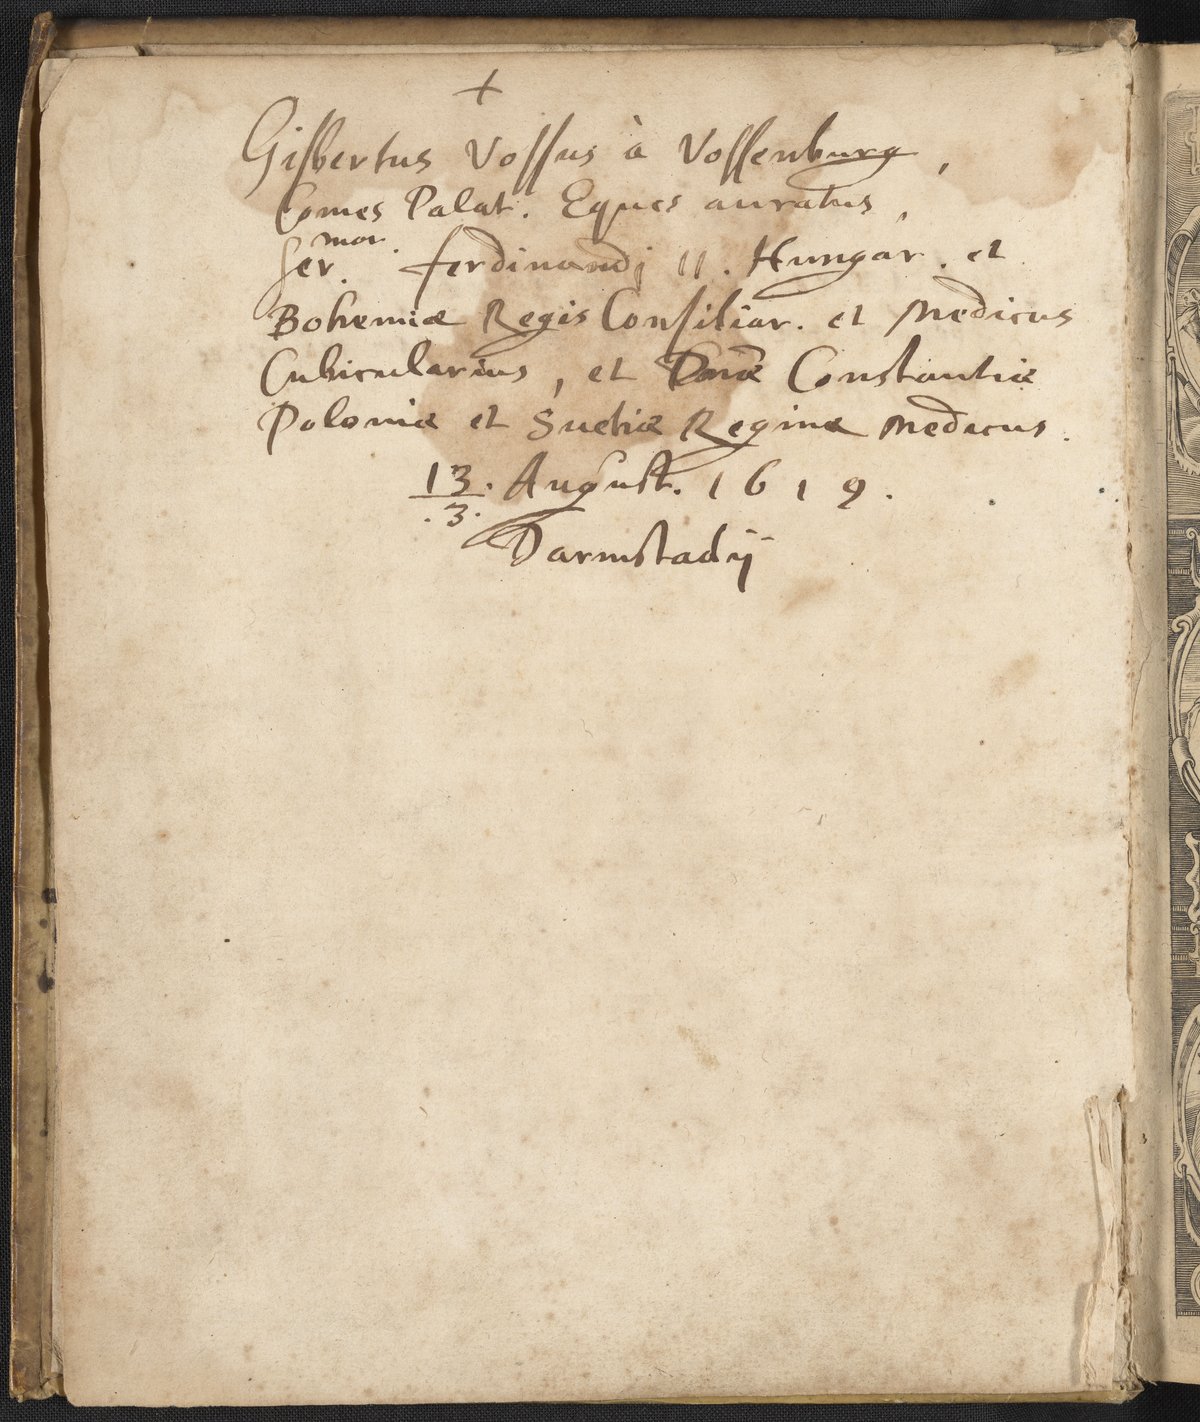 +
Gisbertus Vossus à Vossenburg,
Comes Palat. Eques auratus,
Ser.mor. Ferdinandj II. Hungar. et
Bohemiæ Regis Consiliar. et Medicus
Cubicularius, et Dnæ Constantiæ
Poloniæ et Suetiæ Reginæ Medicus.
13. August. 1619.
.3.
Darmstadij